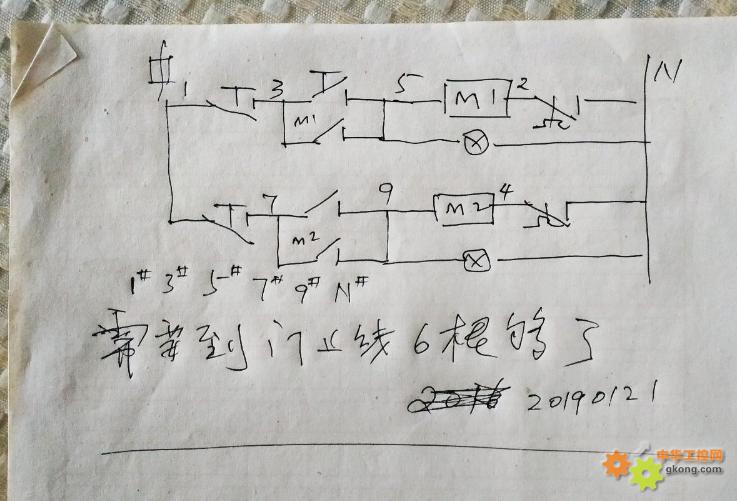 1 3 5 M1 2 N
M1
7 9 M2 4
M2
1# 3# 5# 7# 9# N#
需要到门上线6根够了
20190121
中华工控网
gkong.com